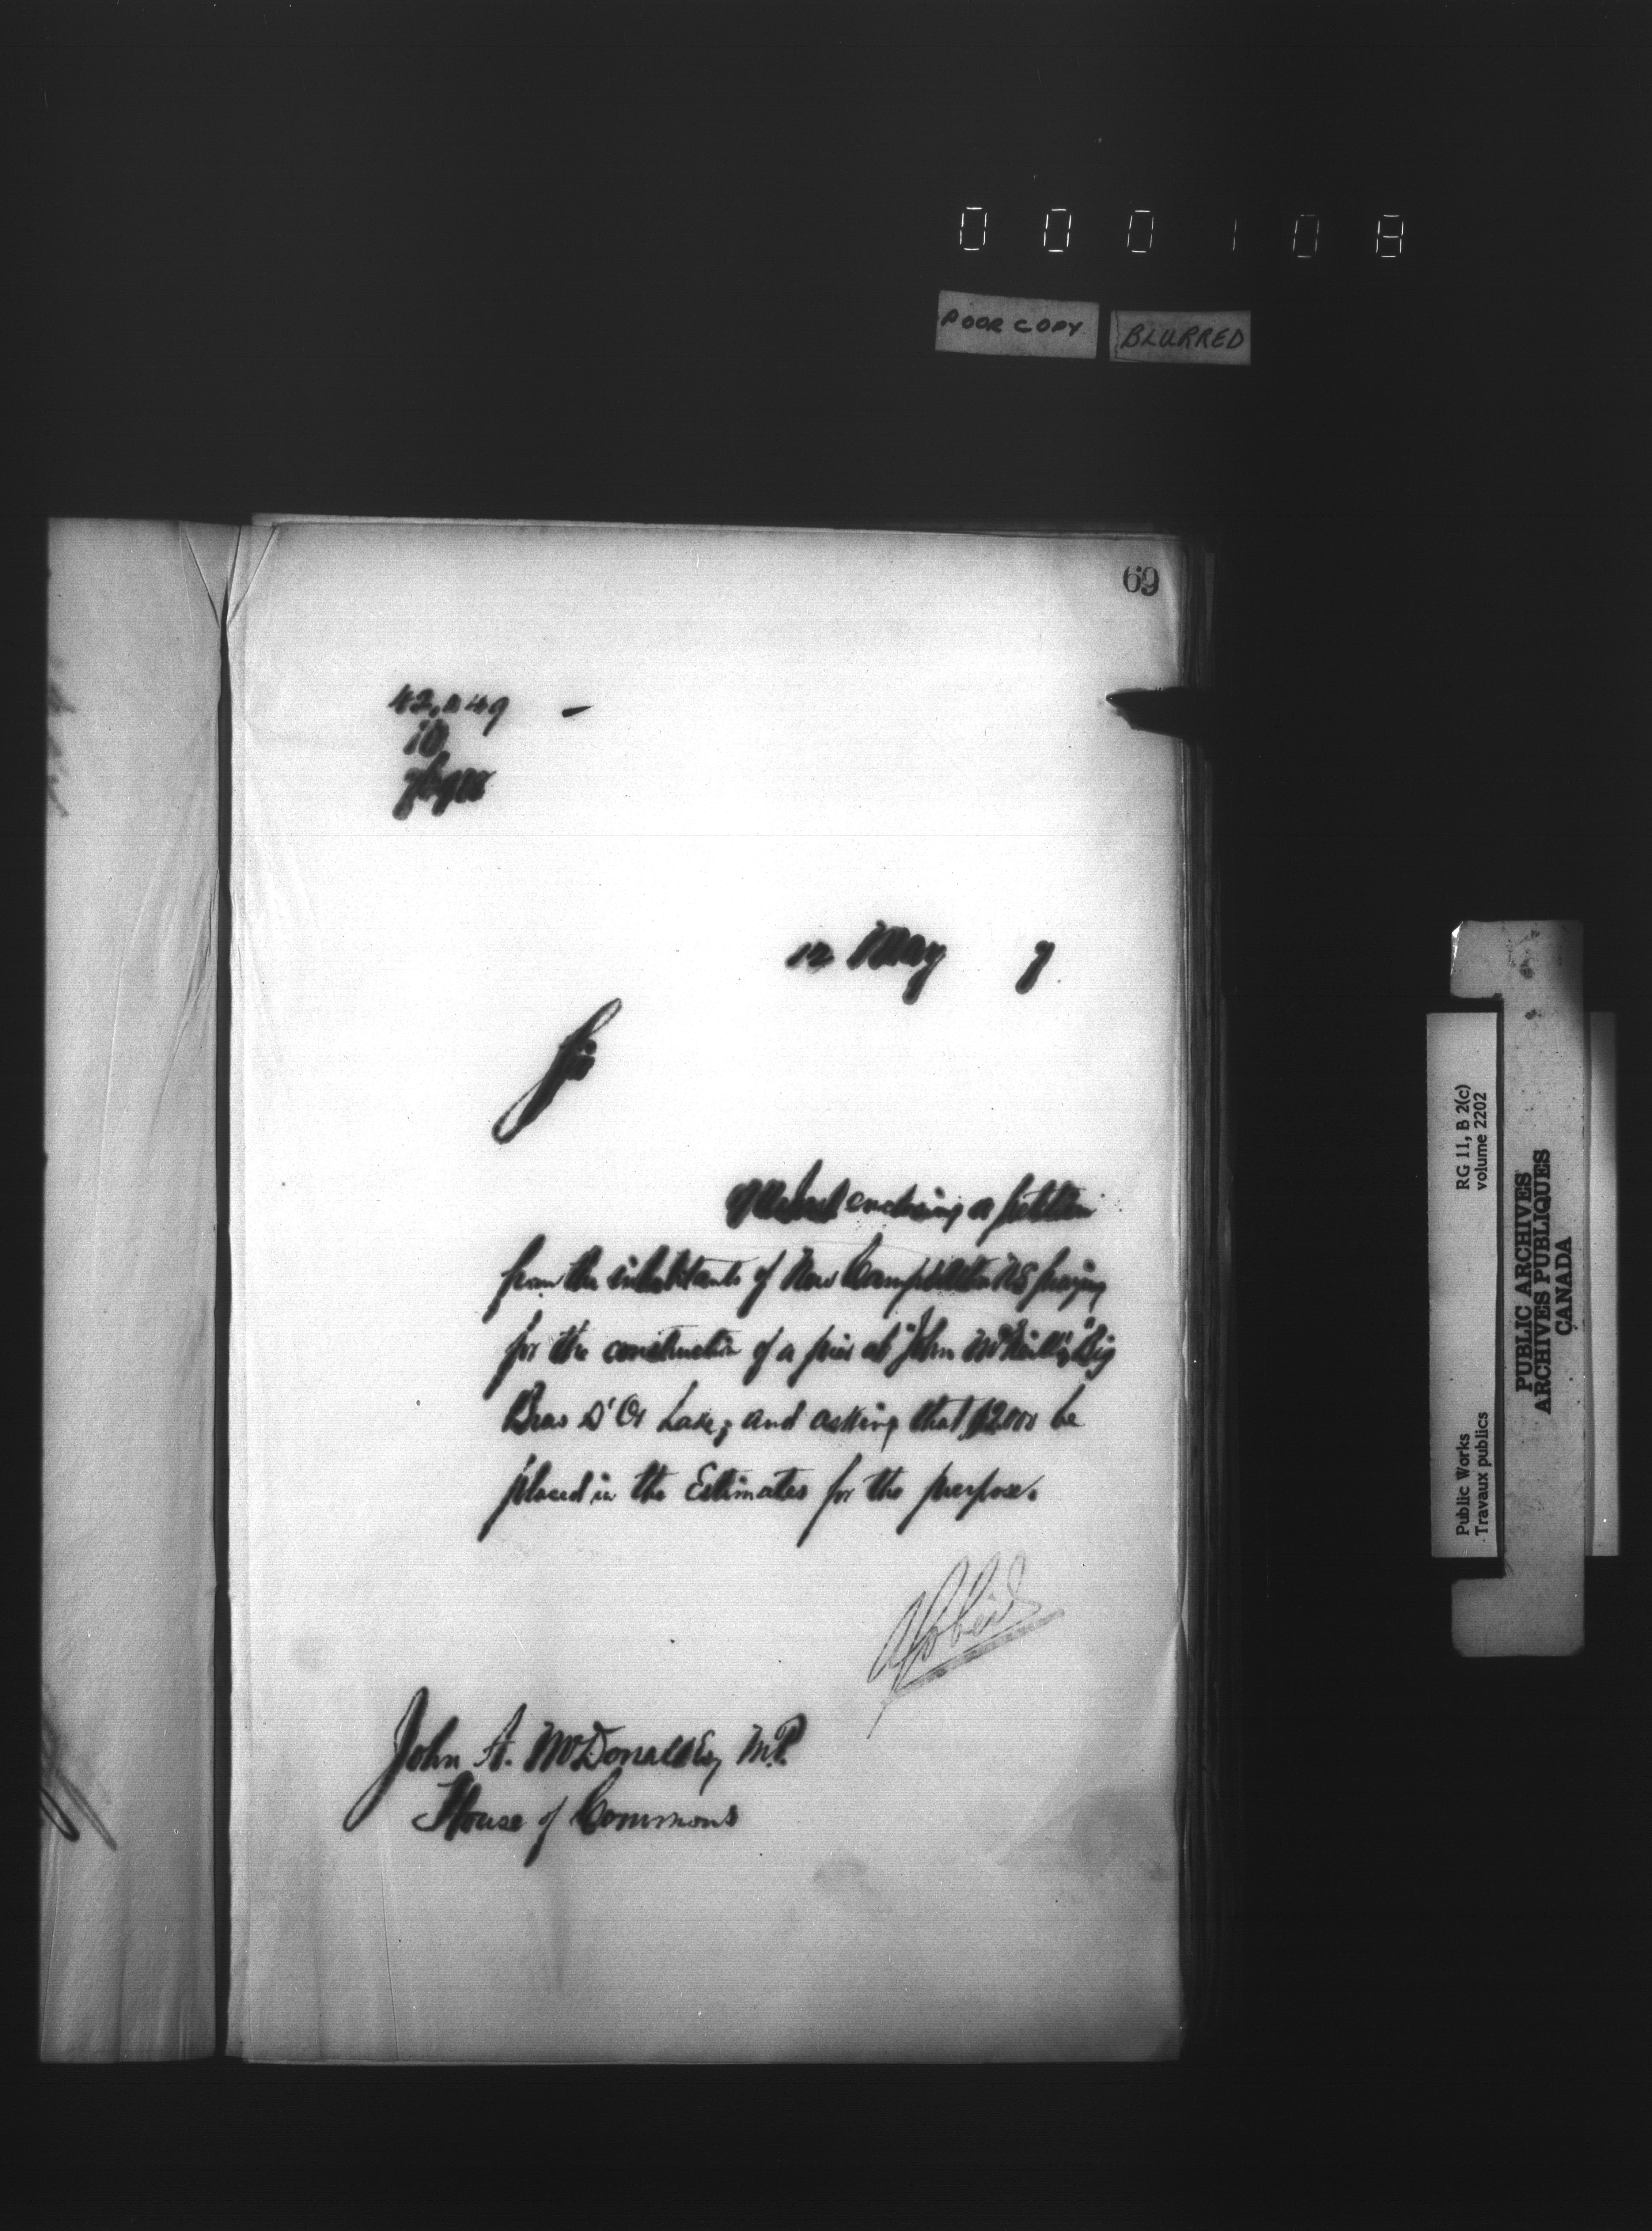 000108
POOR COPY
BLURRED
69
10
12 May 7.
Sir
enclosing a petition
from the inhabitants of New Campbellton NS praying
for the construction of a pier at "John McNeill's" Big
Bras D'Or Lake; and asking that $2.000 be
placed in the Estimates for the purpose.
John A. McDonald Esq M.P.
House of Commons
Public Works
Travaux publics
RG 11, B 2(c)
volume 2202
PUBLIC ARCHIVES
ARCHIVES PUBLIQUES
CANADA